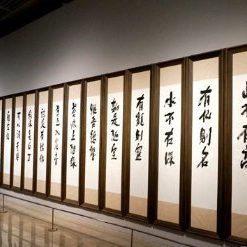 山不在高
有仙則名
水不在深
有龍則靈
斯是陋室
惟吾德馨
苔痕上階綠
草色入簾青
談笑有鴻儒
往來無白丁
可以調素琴
閱金經